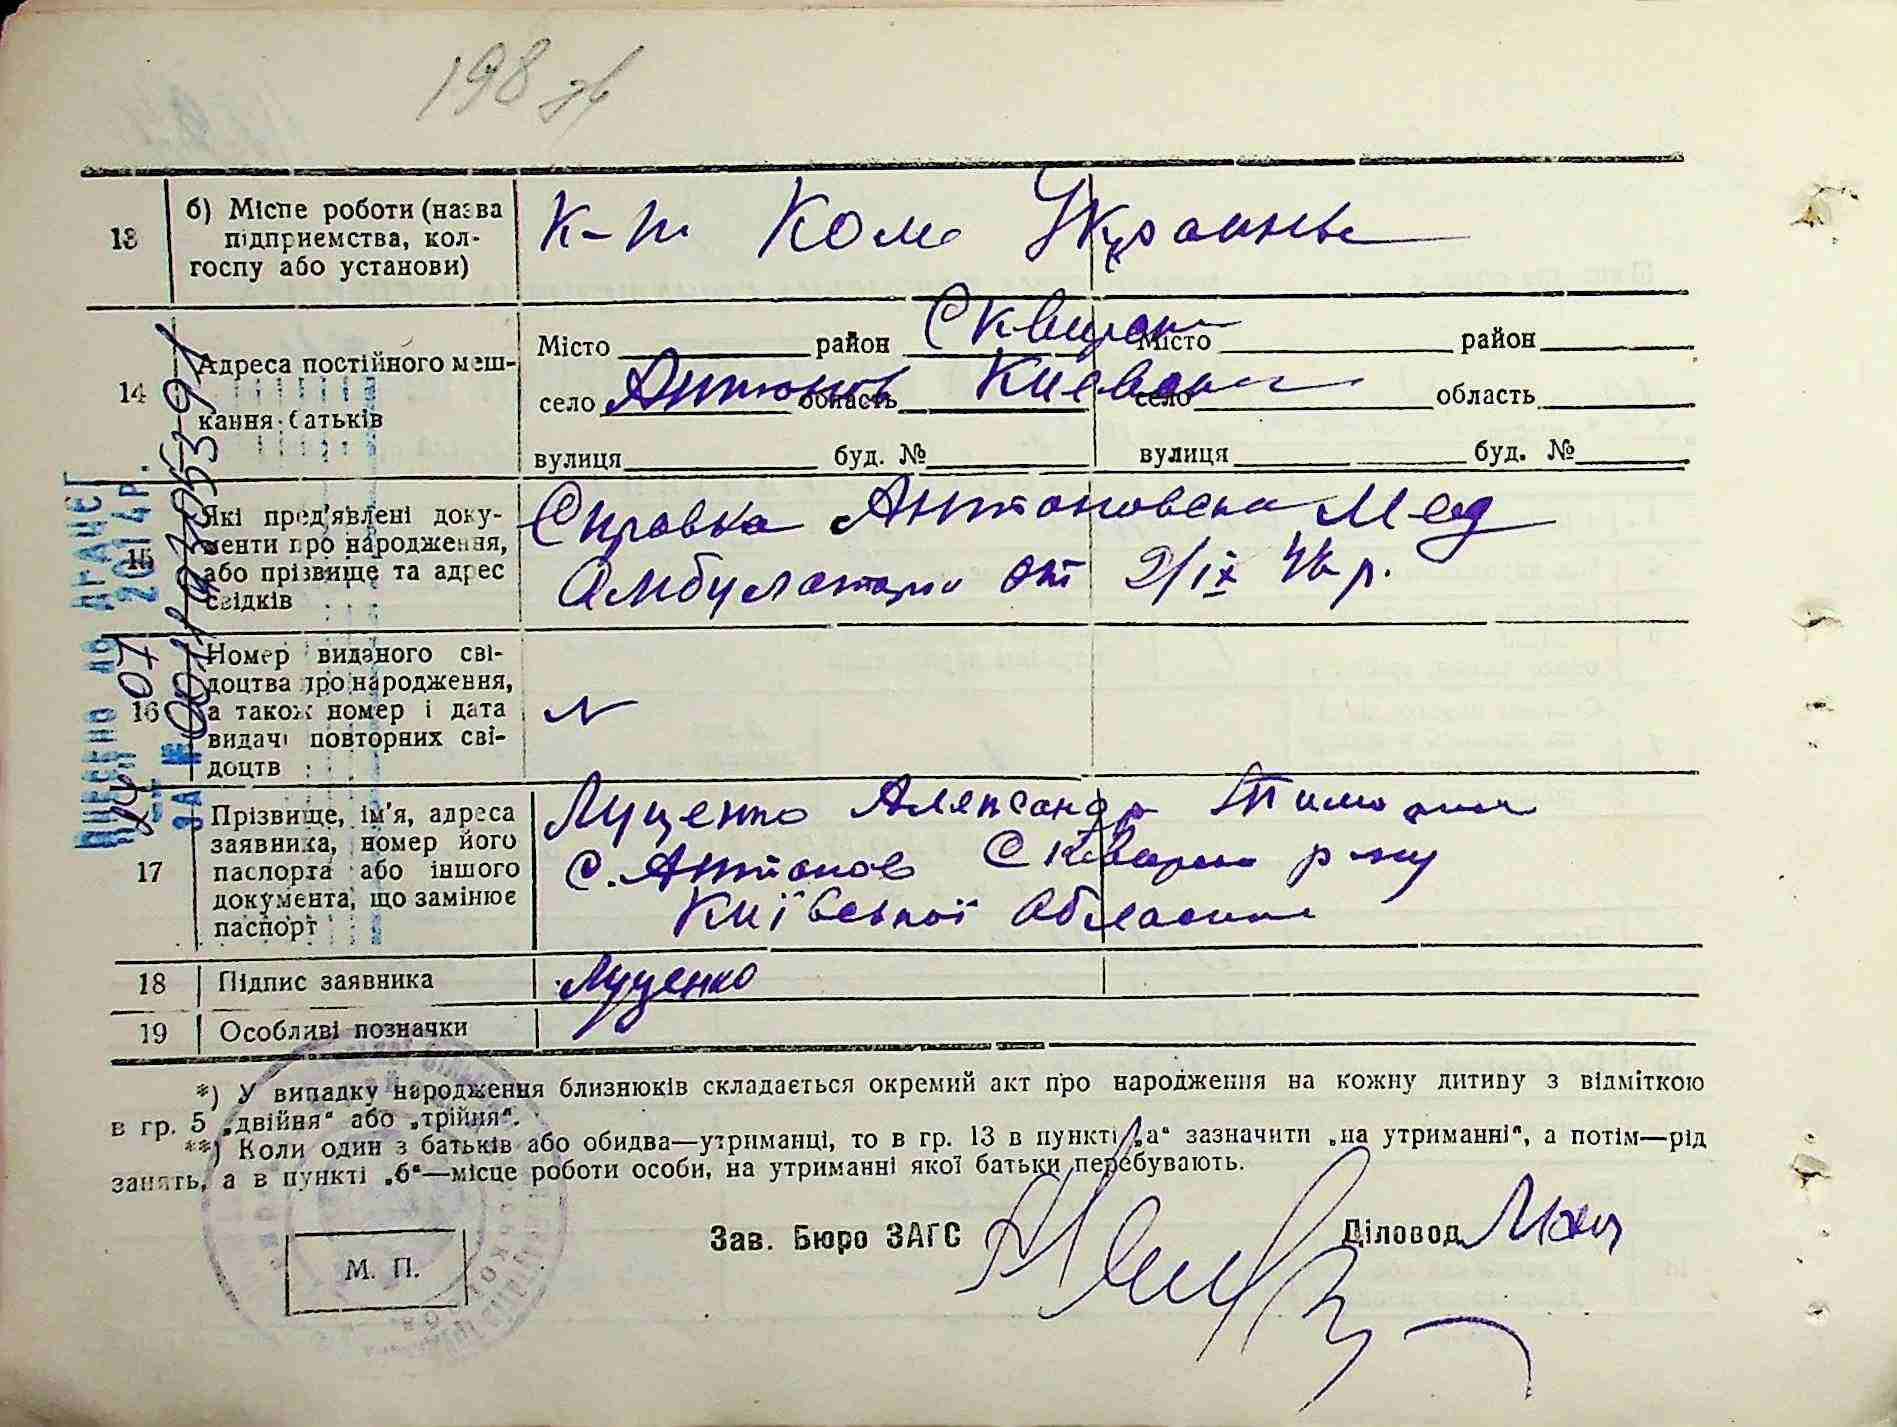 198 зв
13
б) Місце роботи (назва
підприємства, кол-
госпу або установи)
К-п Ком Украины
14
Адреса постійного меш-
кання батьків
Місто район Сквирськ
село Антонов область Киевськ
вулиця буд. №
Місто район
село область
вулиця буд. №
15
Які пред'явлені доку-
менти про народження,
або прізвище та адрес
свідків
Справка Антоновськ Мед
Амбулаторіи от 2/IX 46 р.
16
Номер виданого сві-
доцтва про народження,
а також номер і дата
видачі повторних сві-
доцтв
N
17
Прізвище, ім'я, адреса
заявника, номер його
паспорта або іншого
документа, що замінює
паспорт
Луценко Александр
с. Антонов Сквирськ р-ну
Київської області
18
Підпис заявника
Луценко
19
Особливі позначки
*) У випадку народження близнюків складається окремий акт про народження на кожну дитину з відміткою
в гр. 5 „двійня“ або „трійня“.
**) Коли один з батьків або обидва—утриманці, то в гр. 13 в пункті „а“ зазначити „на утриманні“, а потім—рід
занять, а в пункті „б“—місце роботи особи, на утриманні якої батьки перебувають.
М. П.
Зав. Бюро ЗАГС
Діловод
ВНЕСЕНО ДО ДРАЦСГ
07 2014 р.
ЗА №